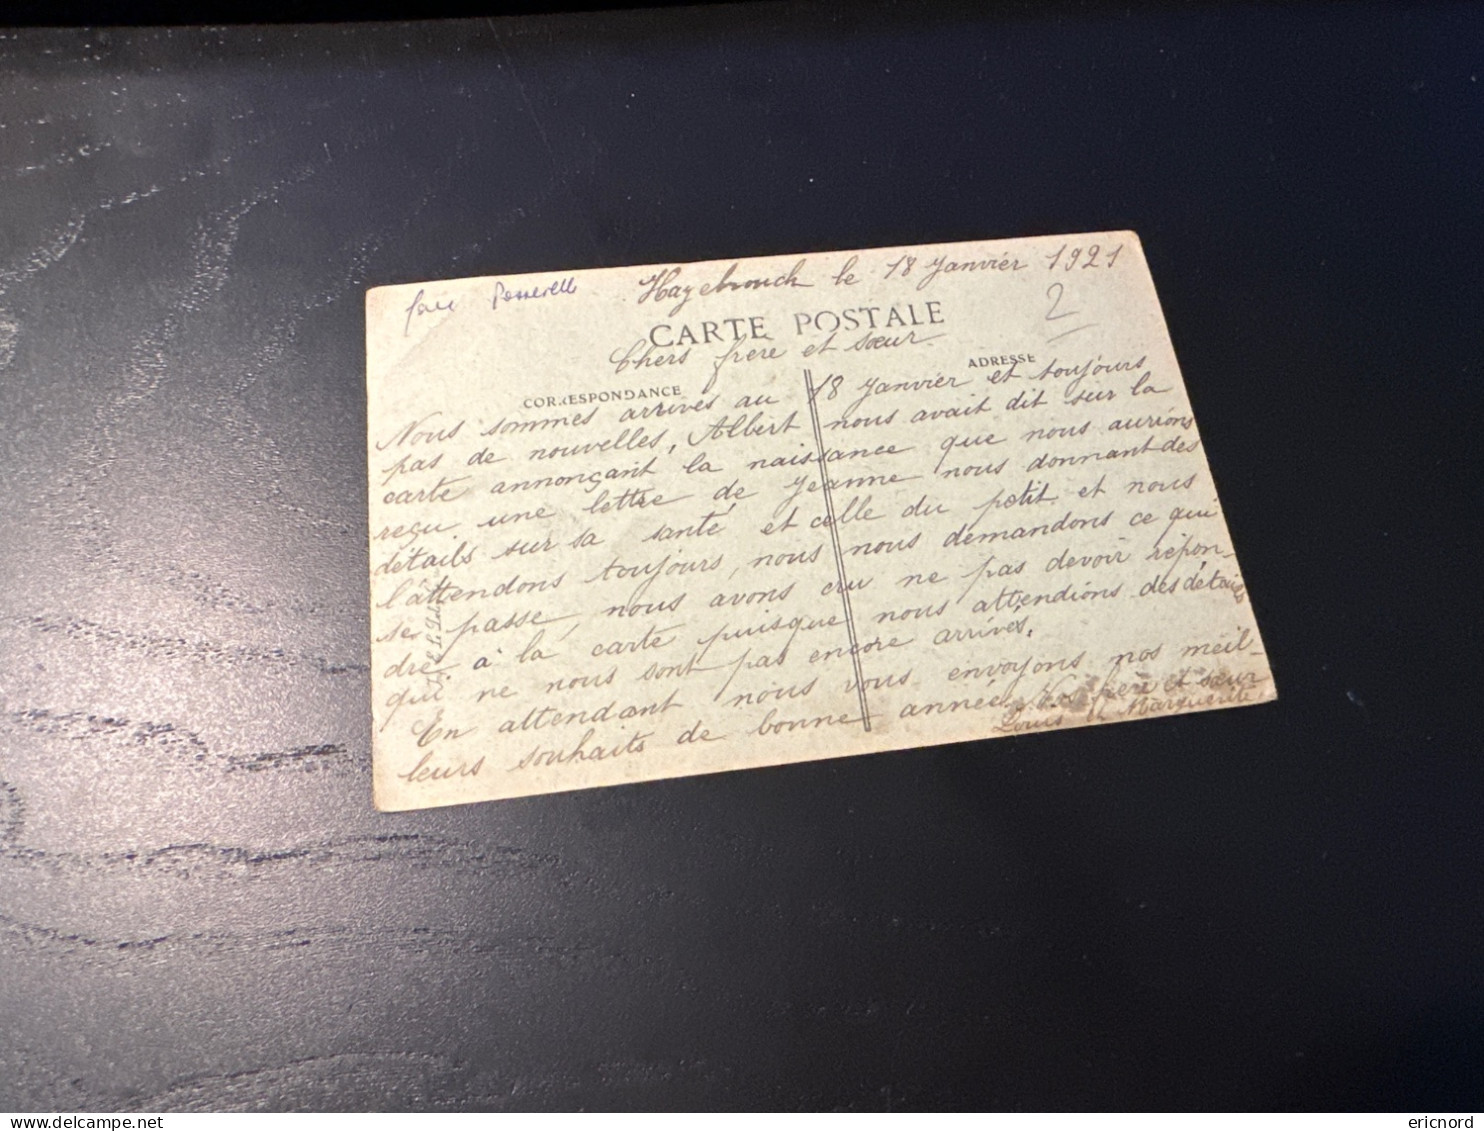 Hazebrouck le 18 Janvier 1921
2
CARTE POSTALE
Chers frère et sœur
CORRESPONDANCE
ADRESSE
Nous sommes arrivés au 18 Janvier et toujours
pas de nouvelles, Albert nous avait dit sur la
carte annonçant la naissance que nous aurions
reçu une lettre de Jeanne nous donnant des
détails sur sa santé et celle du petit et nous
l'attendons toujours, nous nous demandons ce qui
se passe, nous avons cru ne pas devoir répon-
dre à la carte puisque nous attendions des détails
qui ne nous sont pas encore arrivés.
En attendant nous vous envoyons nos meil-
leurs souhaits de bonne année. Vos frère et sœur
Louis et Marguerite
ericnord